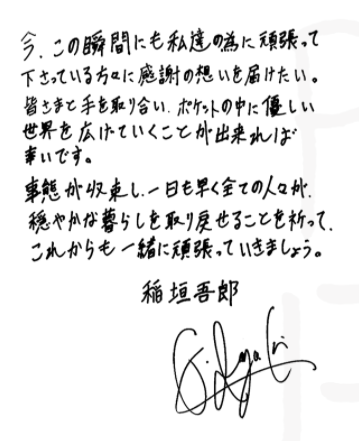 今、この瞬間にも私達の為に頑張って
下さっている方々に感謝の想いを届けたい。
皆さまと手を取り合い、ポケットの中に優しい
世界を広げていくことが出来れば
幸いです。
事態が収束し、一日も早く全ての人々が、
穏やかな暮らしを取り戻せることを祈って、
これからも一緒に頑張っていきましょう。
稲垣吾郎